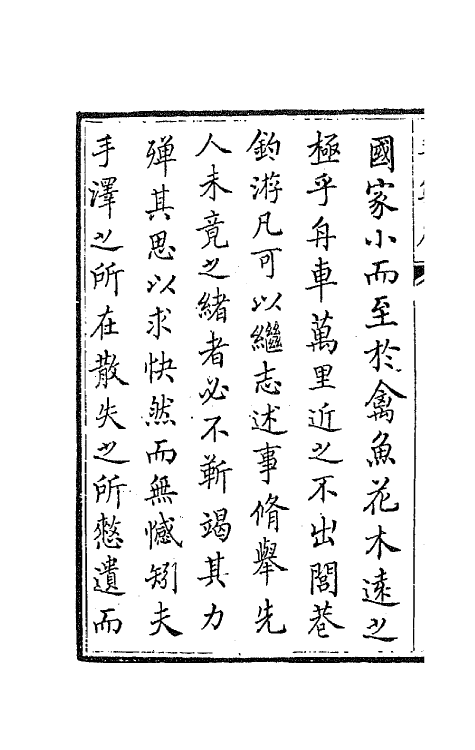 國家小而至於禽魚花木遠之
極乎舟車萬里近之不出閭巷
釣游凡可以繼志述事脩舉先
人未竟之緒者必不靳竭其力
殫其思以求快然而無憾矧夫
手澤之所在散失之所憗遺而